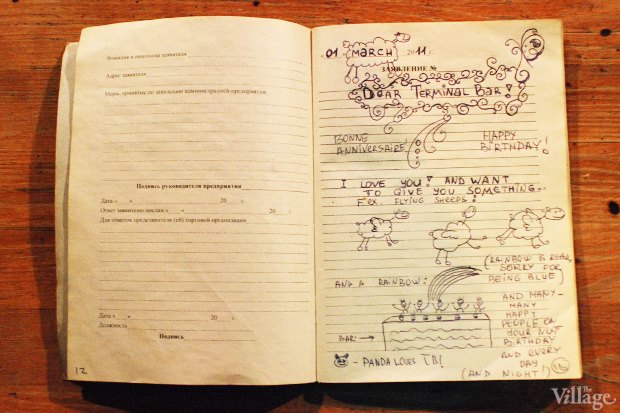 Фамилия и инициалы заявителя
Адрес заявителя
Меры, принятые по заявлению администрацией предприятия:
Подпись руководителя предприятия
Дата « » 20 г.
Ответ заявителю послан « » 20 г.
Для отметок представителя (ей) торговой организации
Дата « » 20 г.
Должность
Подпись
12
«01 MARCH 2011 г.
ЗАЯВЛЕНИЕ №
DEAR TERMINAL BAR!
BONNE ANNIVERSAIRE
HAPPY BIRTHDAY!
I LOVE YOU! AND WANT
TO GIVE YOU SOMETHING...
F.EX. FLYING SHEEPS:
AND A RAINBOW:
(RAINBOW IS REAL,
SORRY FOR
BEING BLUE)
BAR:
AND MANY-
MANY
HAPPY
PEOPLE ON
YOUR NEXT
BIRTHDAY
AND EVERY
DAY
(AND NIGHT!)
- PANDA LOVES TB!
The Village